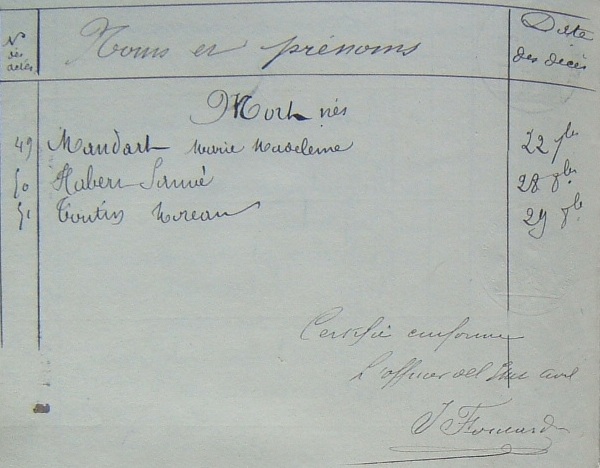 N
des
actes
Noms et prénoms
Date
des décès
Mort nés
49 Mandart Marie Madeleine 22
50 Habert 28 8bre
51 Toutin Moreau 29 8bre
Certifié conforme
L'officier de l'état civil